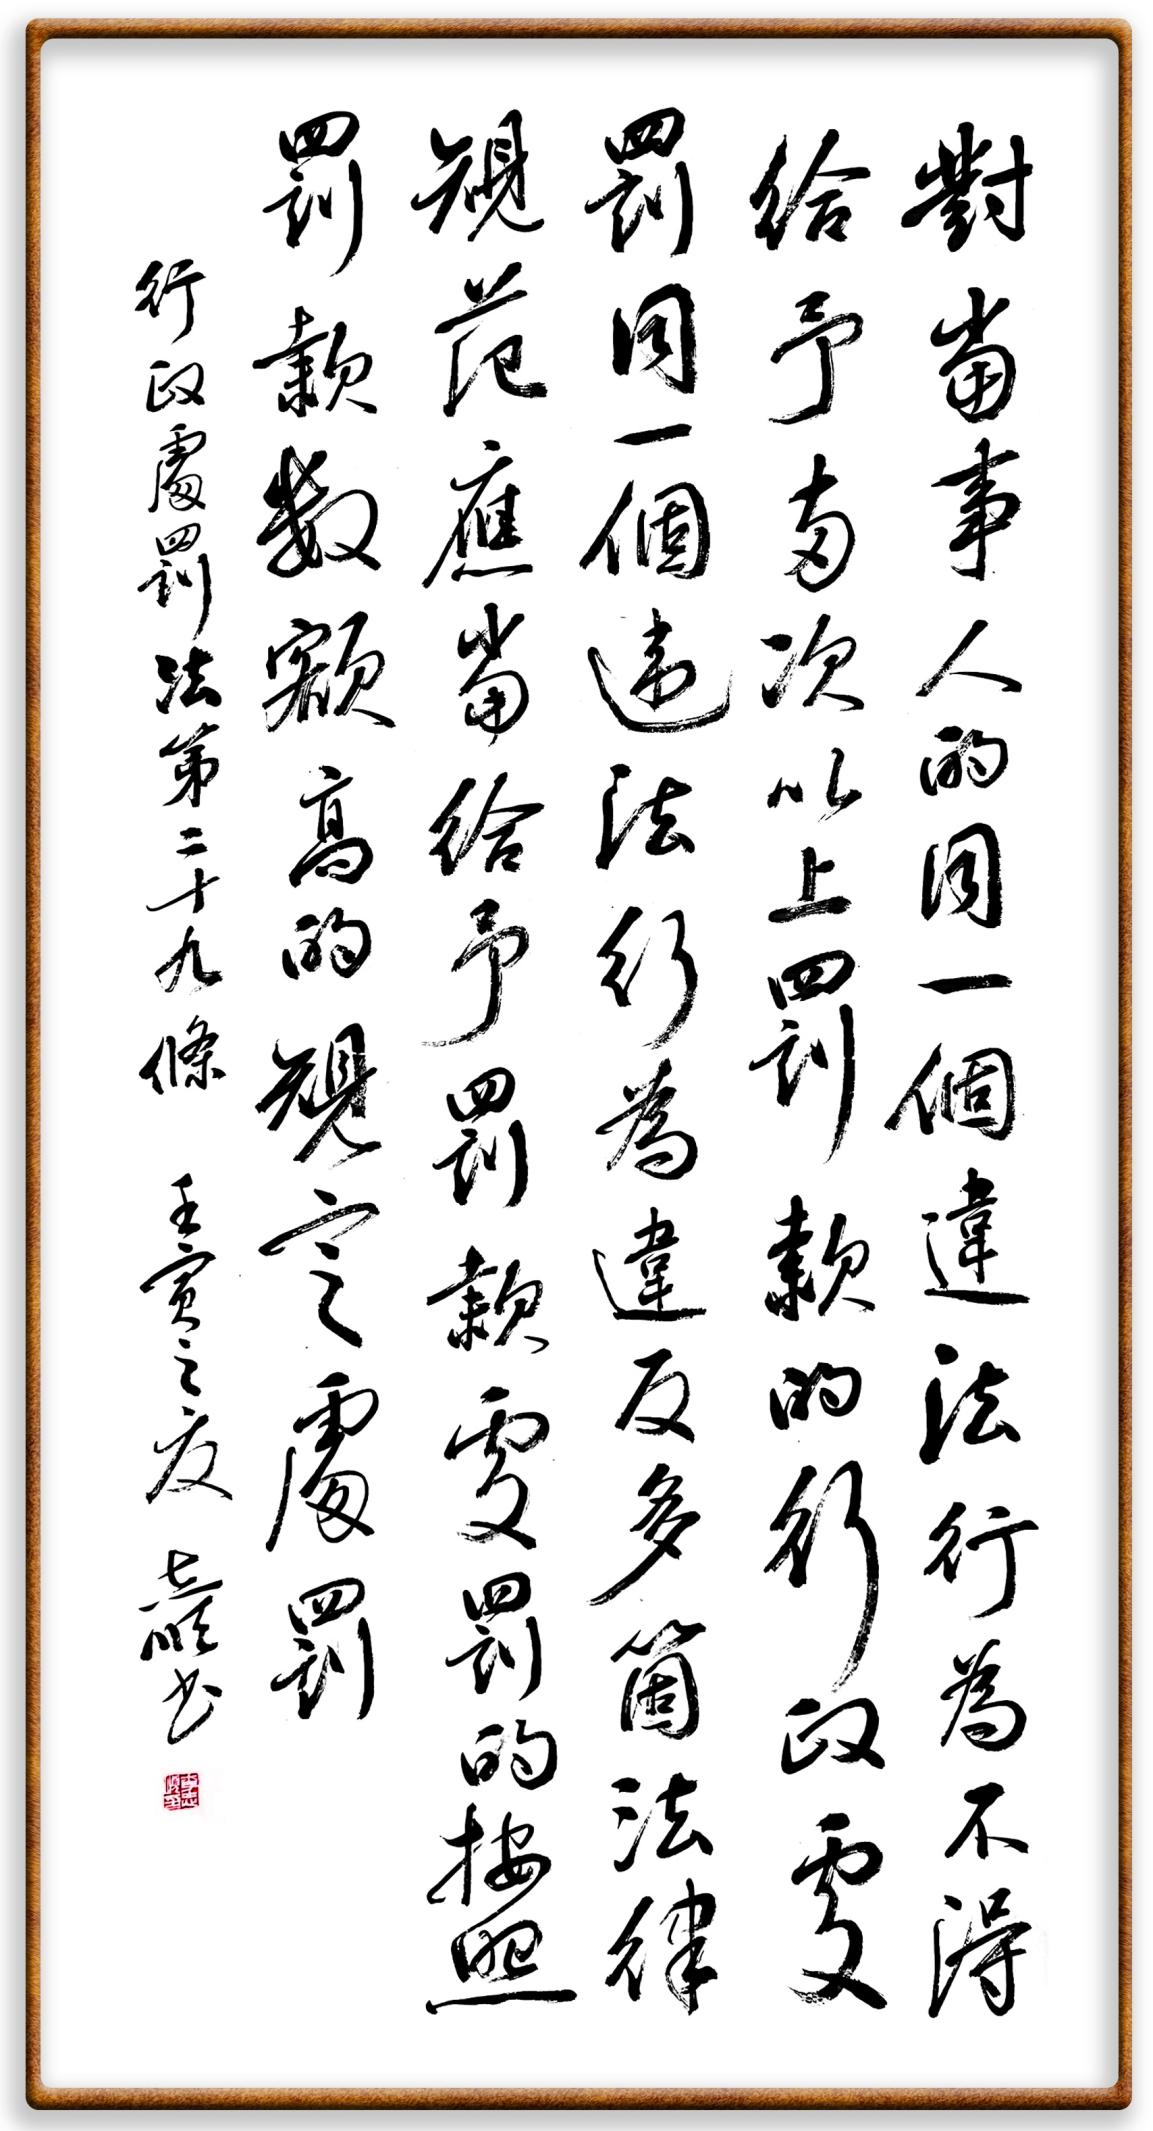 對當事人的同一個違法行為不得
給予兩次以上罰款的行政處
罰同一個违法行為違反多箇法律
規范應當給予罰款處罰的按照
罰款數額高的規定處罰
行政處罰法第二十九條 壬寅之夏 志順书